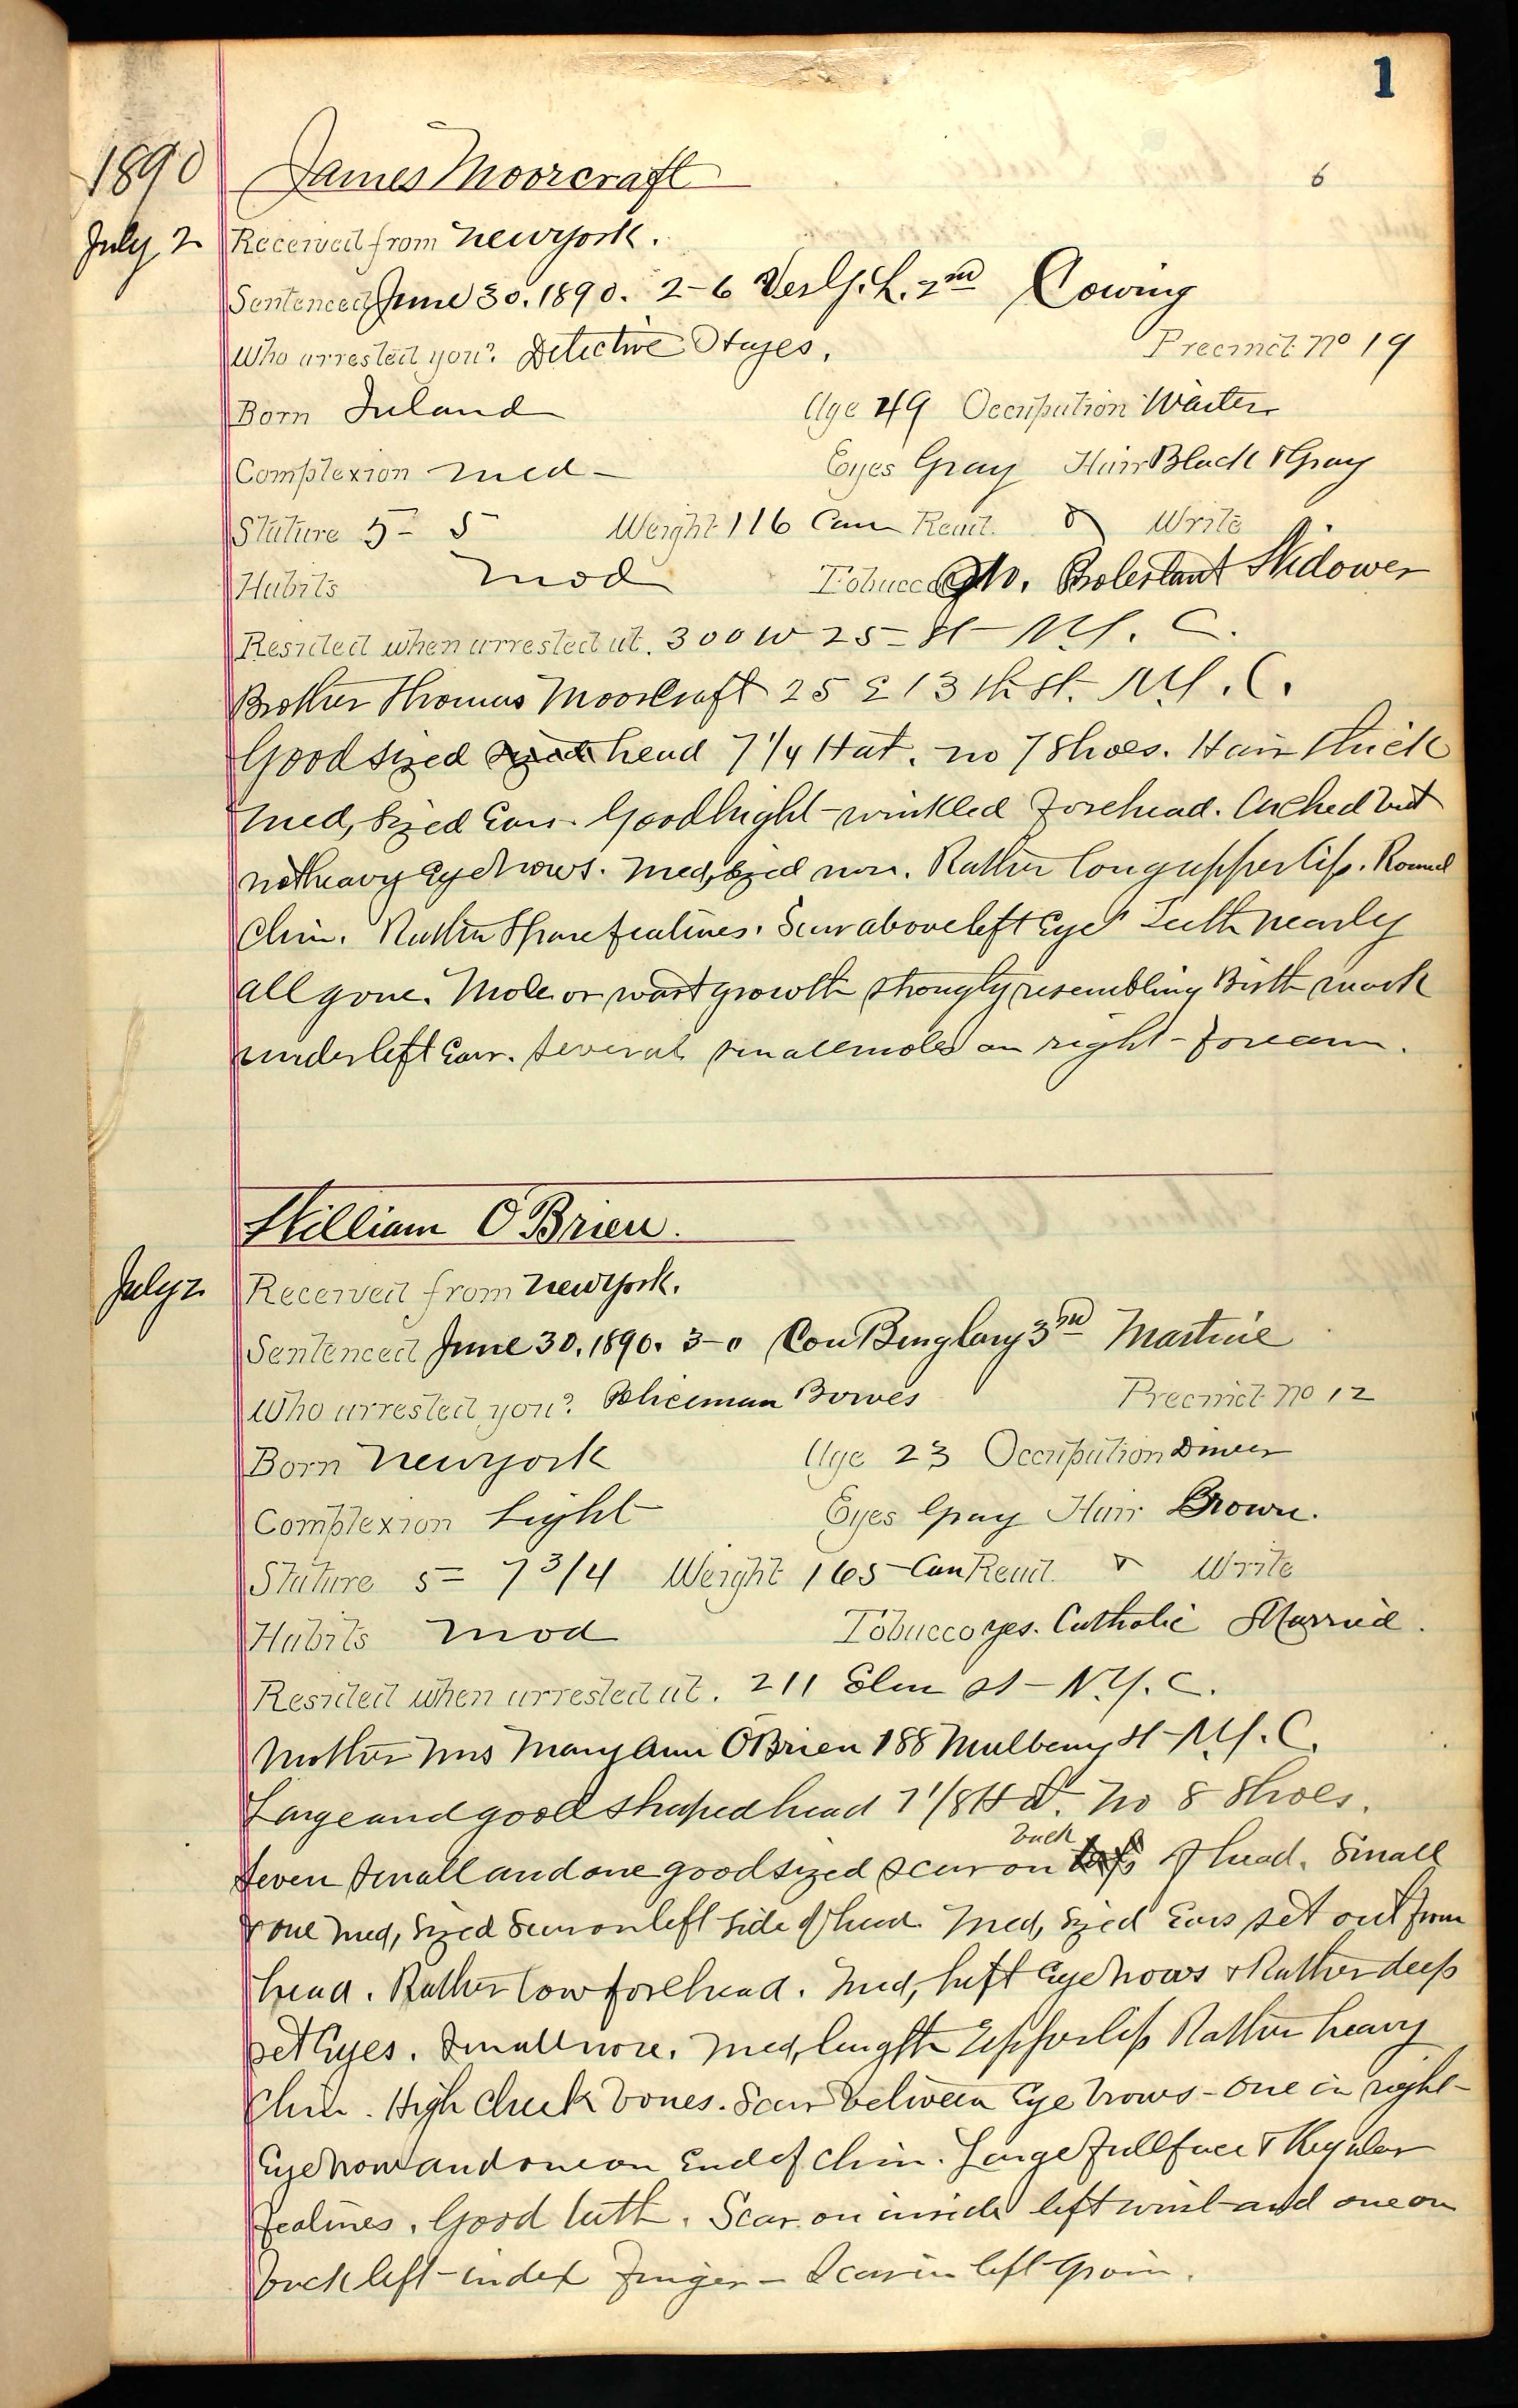 1
1890
James Moorcraft
6
July 2
Received from New York.
Sentenced June 30. 1890. 2-6 G. L. 2nd Cowing
Who arrested you? Detective Hayes. Precinct No 19
Born Ireland Age 49 Occupation Waiter
Complexion Med - Eyes Gray Hair Black & Gray
Stature 5 - 5 Weight 116 Can Read & Write
Habits Mod Tobacco No. Protestant Widower
Resided when arrested at. 300 W 25 - St - N.Y. C.
Brother Thomas Moorcraft 25 E 13th St. N.Y. C.
Good sized head 7 1/4 Hat. No 7 Shoes. Hair thick
Med, Sized Ears. Good hight - wrinkled forehead. Arched but
not heavy Eyebrows. Med, sized nose. Rather long upper lip. Round
Chin. Rather Spare features. Scar above left Eye Teeth nearly
all gone. Mole or wart growth strongly resembling Birth mark
under left Ear. Several small moles on right - forearm.
William O'Brien.
July 2
Received from New York.
Sentenced June 30. 1890. 3-0 Con Burglary 3rd Martine
Who arrested you? Policeman Bowes Precinct No 12
Born New York Age 23 Occupation Driver
Complexion Light Eyes Gray Hair Brown.
Stature 5 = 7 3/4 Weight 165 - Can Read & Write
Habits Mod Tobacco yes. Catholic Married.
Resided when arrested at. 211 Elm St - N.Y. C.
Mother Mrs Mary Ann O'Brien 188 Mulberry St - N.Y. C.
Large and good shaped head 7 1/8 Hat. No 8 Shoes.
Seven small and one good sized scar on back of head. Small
& one Med, Sized Scar on left side of head. Med, Sized Ears set out from
head. Rather low forehead. Med, heft Eyebrows & Rather deep
set Eyes. Small nose. Med, length Upper lip Rather heavy
Chin. High Cheek bones. Scar between Eye brows - one in right -
Eyebrow and one on End of Chin. Large full face & Regular
features. Good teeth. Scar on inside left wrist and one on
back left - index finger - Scar in left groin.